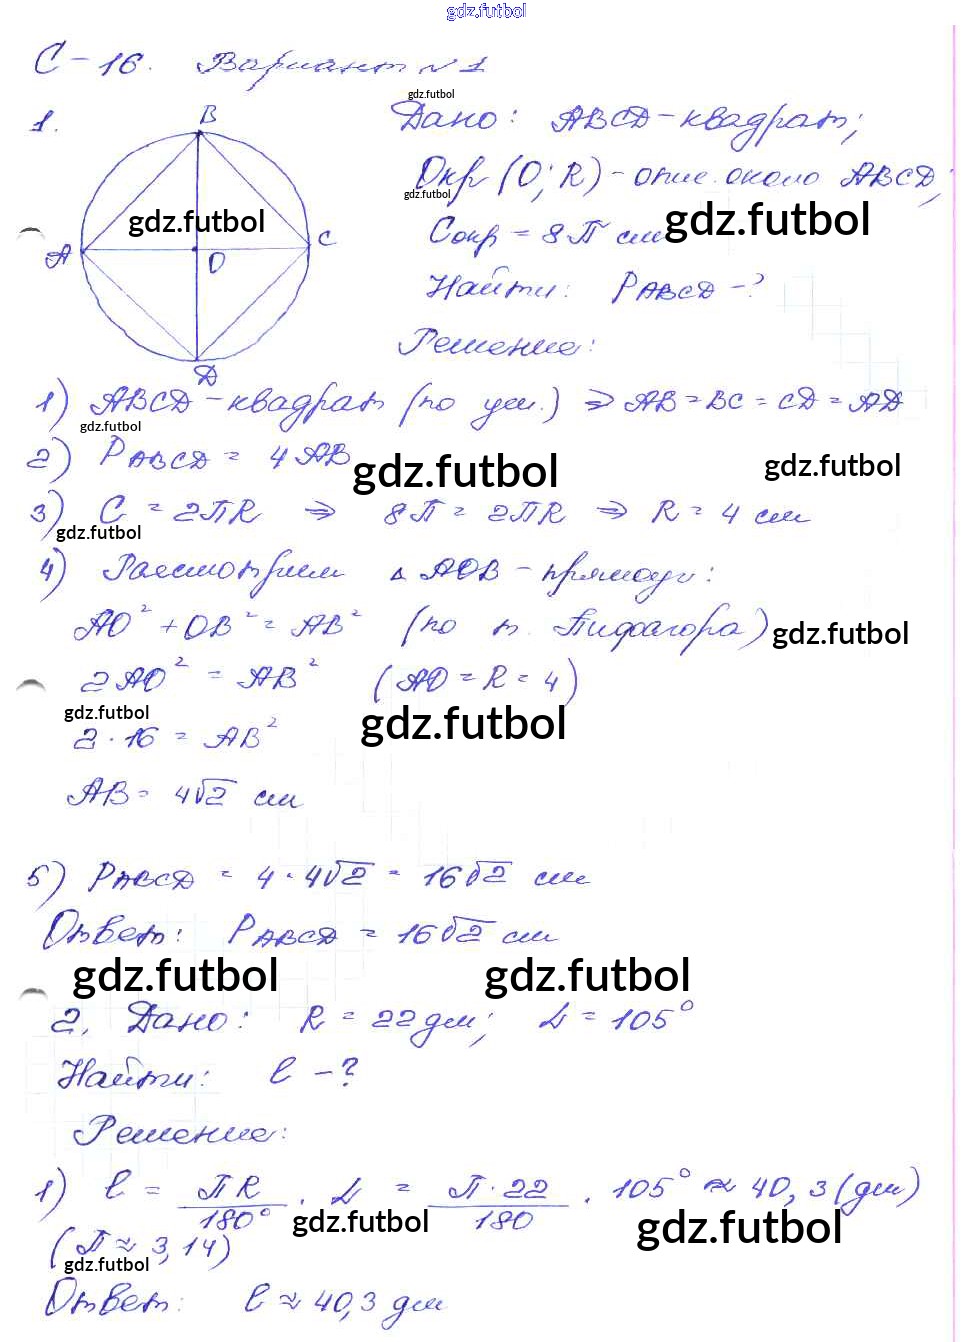 gdz.futbol
С-16. Вариант №1
gdz.futbol
1.
B
Дано: ABCD-квадрат;
Окр (O; R) - опис. около ABCD;
gdz.futbol
gdz.futbol
gdz.futbol
Cокр = 8П см
A
O
C
Найти: PABCD - ?
Решение:
D
1) ABCD-квадрат (по усл.) ⇒ AB = BC = CD = AD
gdz.futbol
2) PABCD = 4AB
gdz.futbol
gdz.futbol
3) C = 2ПR ⇒ 8П = 2ПR ⇒ R = 4 см
gdz.futbol
4) Рассмотрим △ AOB - прямоуг:
AO² + OB² = AB² (по т. Пифагора)
gdz.futbol
2AO² = AB² (AO = R = 4)
gdz.futbol
gdz.futbol
2 · 16 = AB²
AB = 4√2 см
5) PABCD = 4 · 4√2 = 16√2 см
Ответ: PABCD = 16√2 см
gdz.futbol
gdz.futbol
2. Дано: R = 22 дм; L = 105°
Найти: l - ?
Решение:
1) l = ПR/180° · L = П·22/180 · 105° ≈ 40,3 (дм)
gdz.futbol
gdz.futbol
(П ≈ 3,14)
gdz.futbol
Ответ: l ≈ 40,3 дм